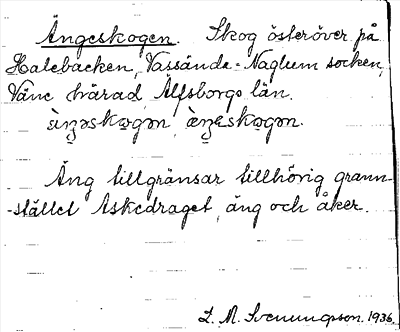 Ängeskogen. Skog österöver på
Halebacken, Vassända-Naglum socken,
Väne härad Älfsborgs län.
Äng tillgränsar tillhörig grann-
-stället Askedraget, äng och åker.
L. M. Svenungsson. 1936.